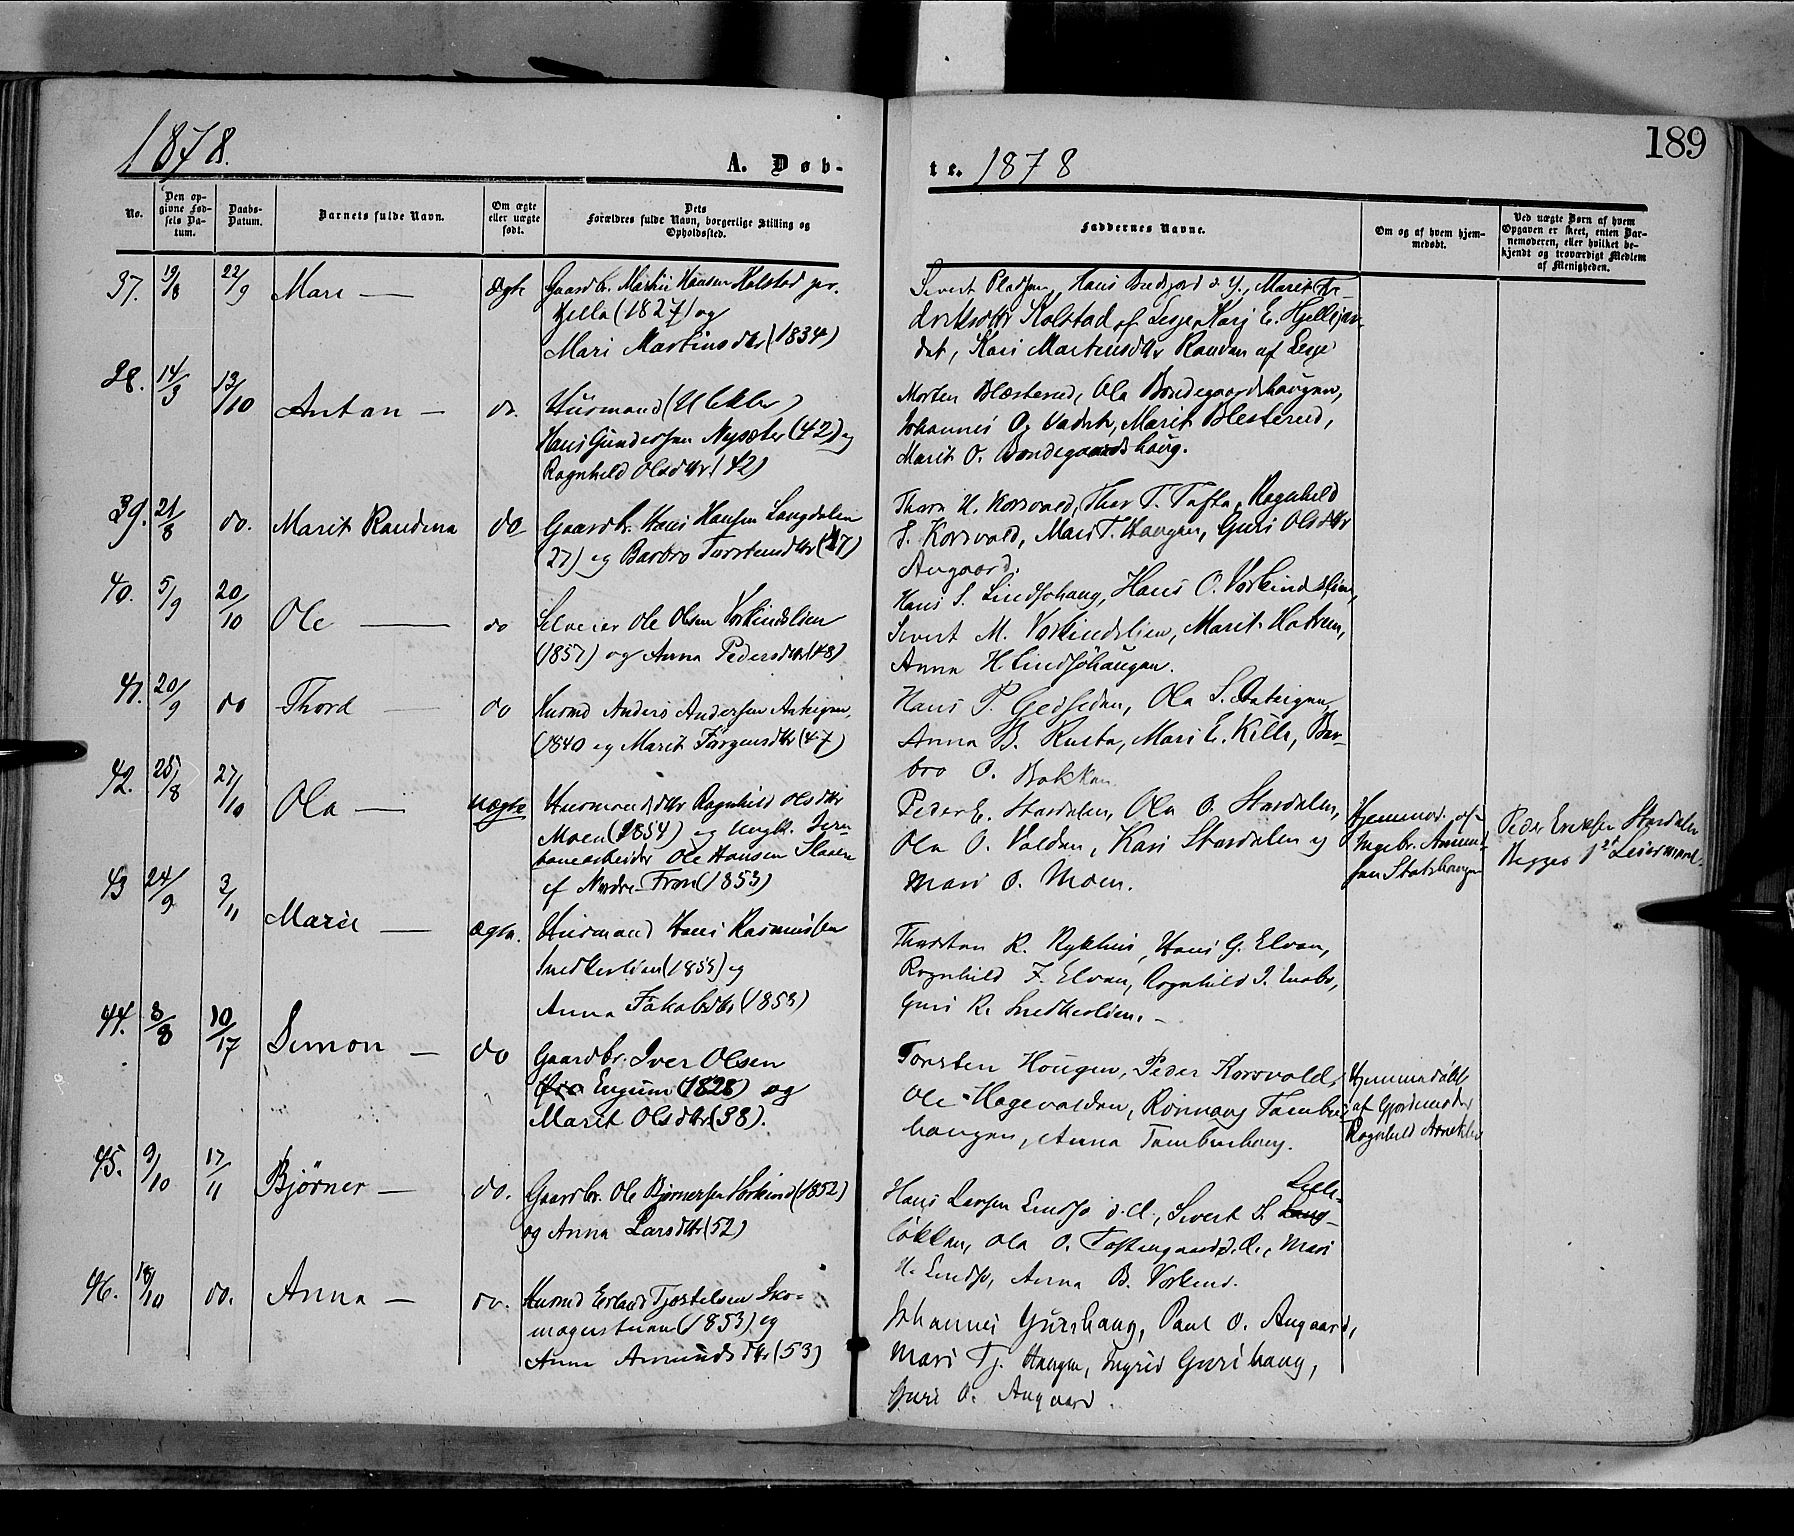 1878.
A. Døb-
te. 1878
189
No.
Den op-
givne Fød-
sels Da-
tum.
Daabs-
Datum.
Barnets fulde Navn.
Om ægte
eller uægte
født.
Dets
Forældres fulde Navn, borgerlige Stilling og
Opholdssted.
Faddernes Navne.
Om og af hvem hjem-
medøbt.
Ved uægte Børn af hvem
Opgaven er skeet, enten Bar-
nemoderen, eller hvilket be-
kjendt og troværdigt Medlem
af Menigheden.
37. 19/8 22/9 Mari — Ægte
Gaardbr. Hansen Kolstad
(1827) og
Mari Martinsdtr (1834)
Sivert Hans Marit
Kolstad af Lesje, Kari E.
Kari Martinsdtr Randen af Lesje
38. 14/9 13/10 Anton — do.
Husmand
Hans Gundersen Nysæter (42) og
Ragnhild Olsdtr (42)
Morten Blæsterud, Ola Bondegaardshaugen,
Johannes O. Marit Blesterud,
Marit O. Bondegaardshaug.
39. 21/8 do. Marit Randina do
Gaardbr. Hans Hansen Langdalen
(27) og Barbro Torstensdtr (47)
Thora H. Korsvold, Thor T. Tofte, Ragnhild
S. Korsvold, Mari T. Haugen, Guri Olsdtr
Angaard.
40. 5/9 20/10 Ole — do
Selveier Ole Olsen Vorkindslien
(1857) og Anna Pedersdtr (48)
Hans S. Lindsøhaug, Hans O. Vorkindslien,
Sivert M. Vorkindslien, Marit Hatrem,
Anna H Lindsøhaugen.
41. 20/9 do Thord — do
Husmd Anders Andersen
(1840 og Marit Jørgensdtr (47)
Hans P. Gedseden, Ola S.
Anna B. Rusta, Mari E. Kille, Bar-
bro O. Bakken
42. 25/8 27/10 Ola — uægte
Husmandsdtr Ragnhild Olsdtr
Moen (1854) og Ungk. Jern-
banearbeider Ole Hansen
af Nordre-Fron (1853)
Peder E. Stordalen, Ola O. Stordalen,
Ola O. Volden, Kari Stordalen og
Mari O. Moen.
Hjemmed. af
Ingebr. Amund-
sen
Peder Eriksen Stordalen
Begges 1st Leiermaal.
43 24/9 3/11 Marie — ægte.
Husmand Hans Rasmussen
Snedkerlien (1855) og
Anna Jakobsdtr (1853)
Thorsten R. Rykhus, Hans G. Elvan,
Ragnhild F. Elvan, Ragnhild J.
Guri R. Snedkerlien. -
44. 3/8 10/17 Simon — do
Gaardbr. Iver Olsen
Engum (1828) og
Marit Olsdtr (38).
Torsten Hougen, Peder Korsvold,
Ole Hagevolden, Rønnaug
haugen, Anna
Hjemmedøbt
af Gjordemoder
Ragnhild
45. 9/10 17/11 Bjørner — do.
Gaardbr. Ole Bjørnersen Vorkind (1852)
og Anna Larsdtr (52)
Hans Larsen Lindsø d. Æ., Sivert S. Lang-
Lille-
løkken, Ola O. Toftengaard d. Æ., Mari
H. Lindsø, Anna B. Vorkind.
46. 18/10 do. Anna — do.
Husmd Erland Tjøstelsen Sko-
magerstuen (1853) og
Anne Amundsdtr (53)
Johannes Gurihaug, Paul O. Angaard,
Mari Tj. Haugen, Ingrid Gurihaug,
Guri O. Angaard.